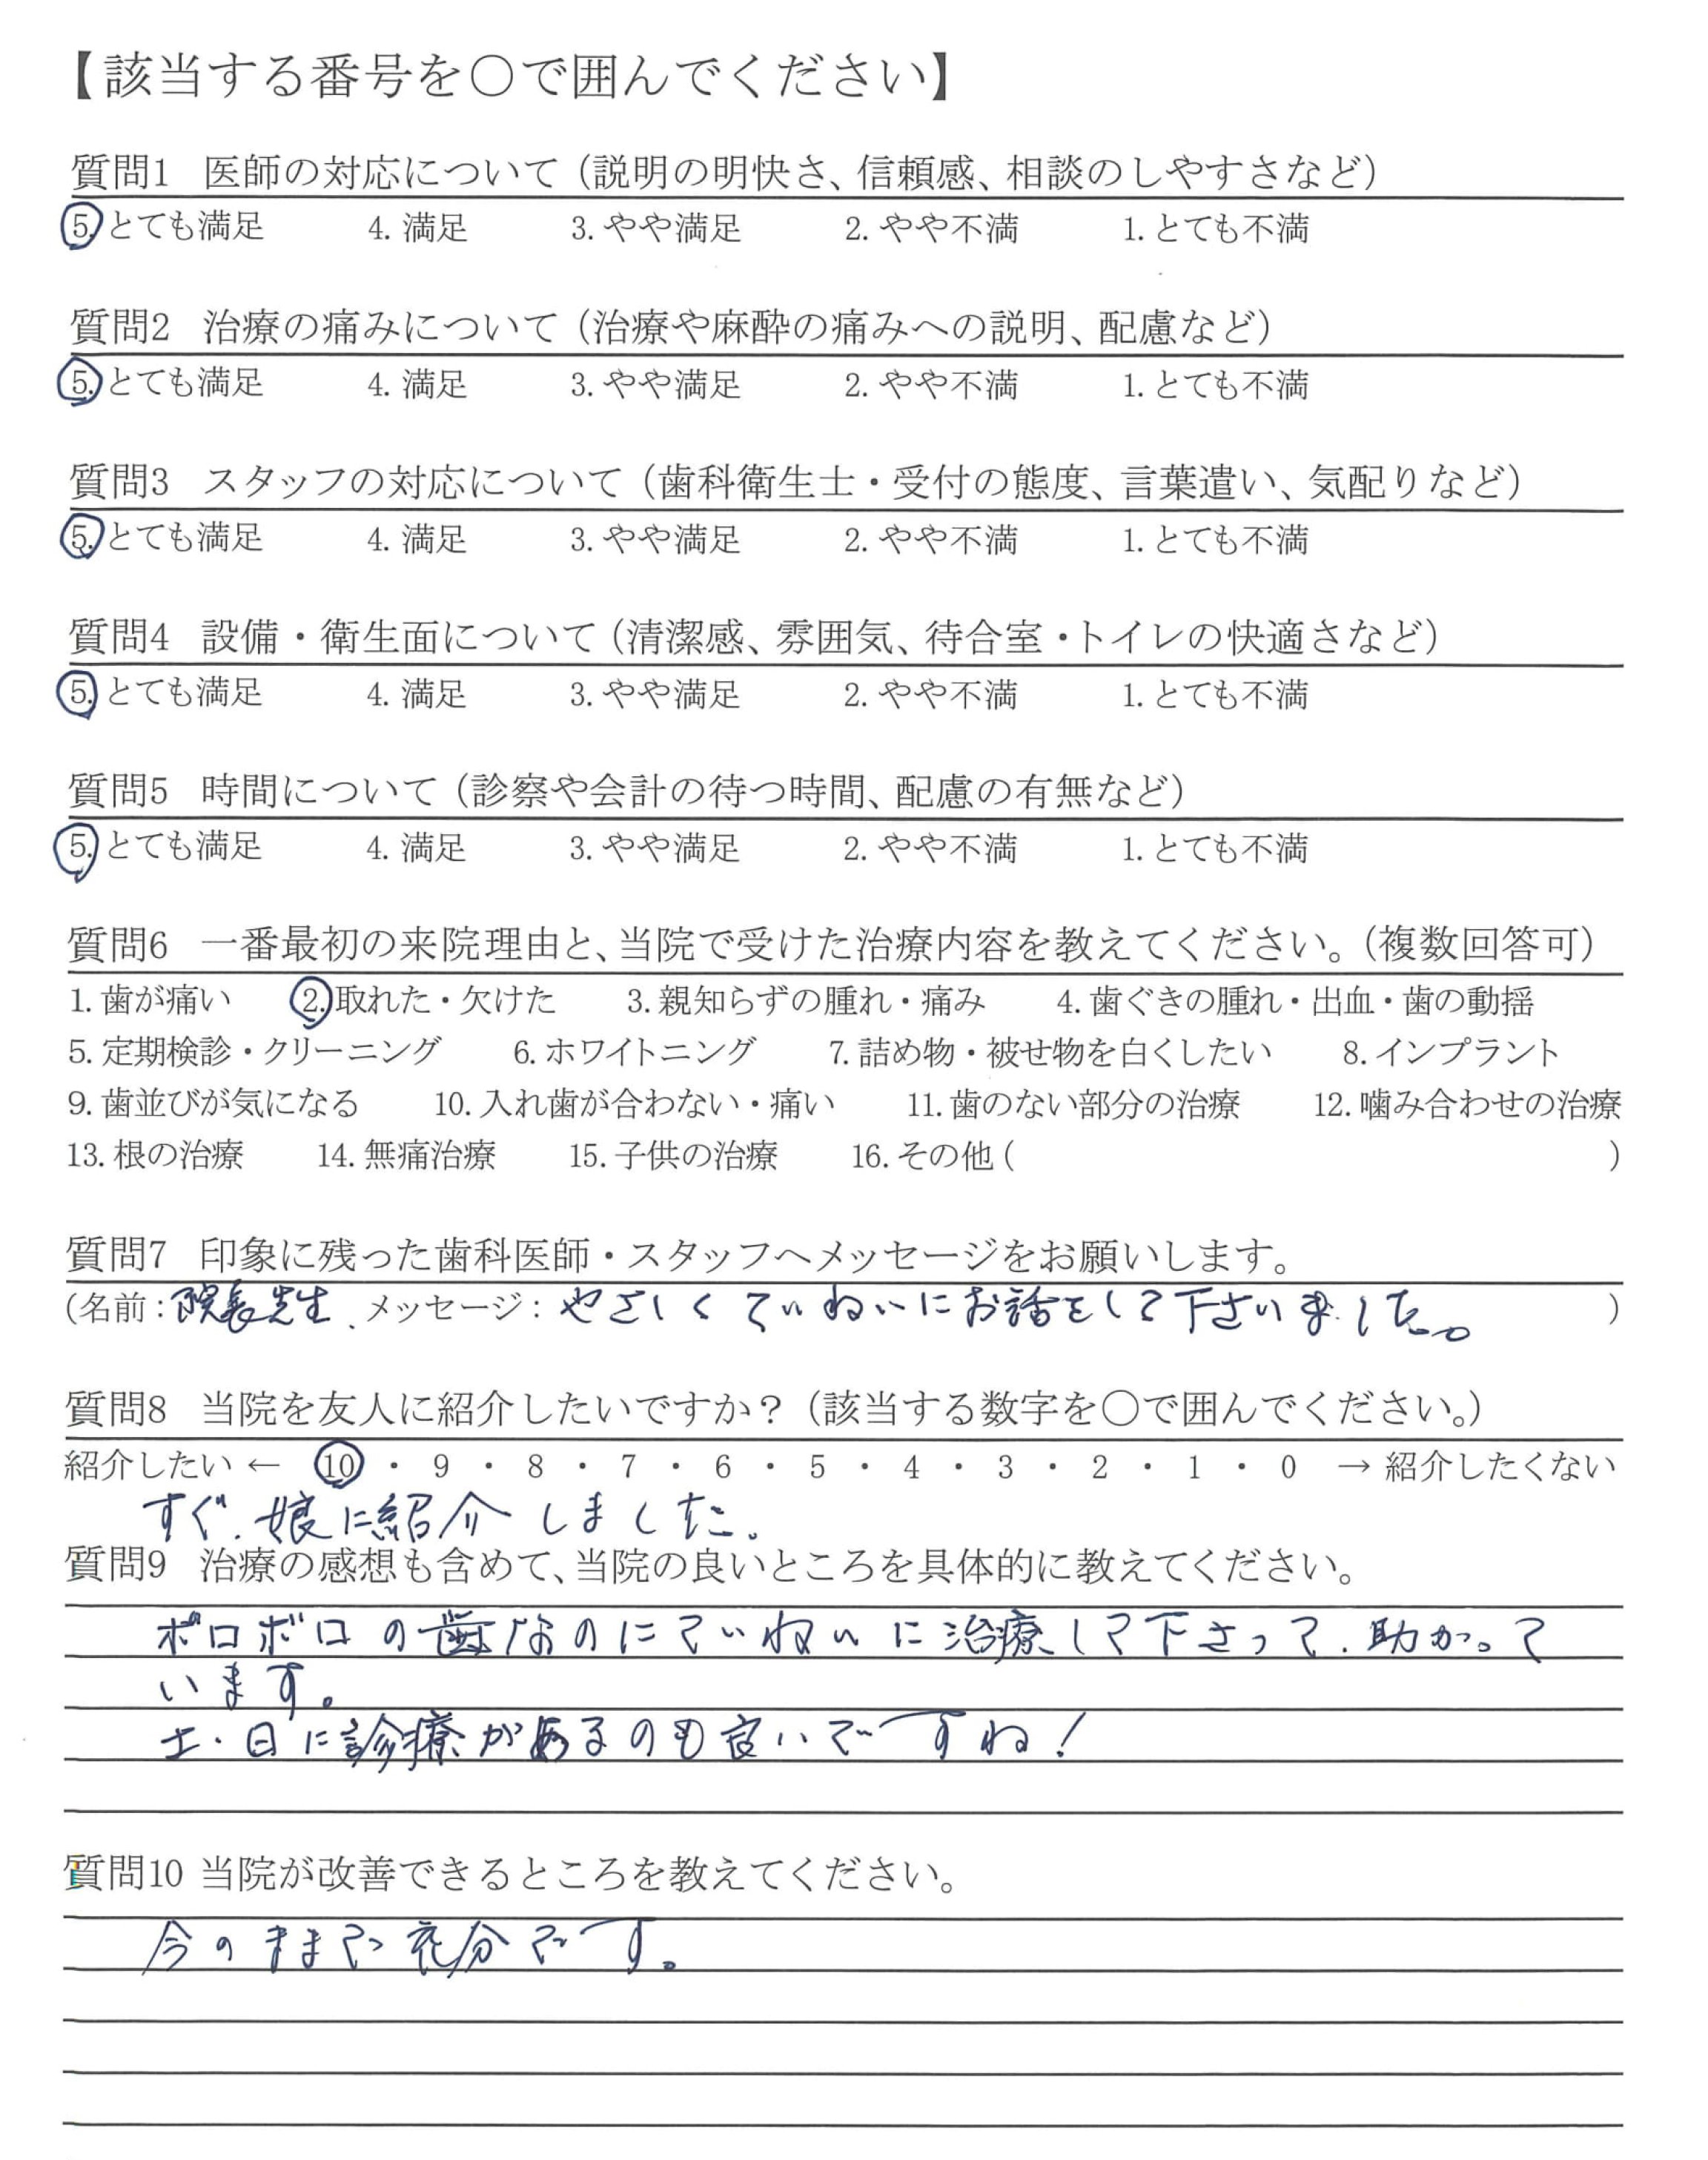 【該当する番号を○で囲んでください】
質問1 医師の対応について（説明の明快さ、信頼感、相談のしやすさなど）
5. とても満足 4. 満足 3. やや満足 2. やや不満 1. とても不満
質問2 治療の痛みについて（治療や麻酔の痛みへの説明、配慮など）
5. とても満足 4. 満足 3. やや満足 2. やや不満 1. とても不満
質問3 スタッフの対応について（歯科衛生士・受付の態度、言葉遣い、気配りなど）
5. とても満足 4. 満足 3. やや満足 2. やや不満 1. とても不満
質問4 設備・衛生面について（清潔感、雰囲気、待合室・トイレの快適さなど）
5. とても満足 4. 満足 3. やや満足 2. やや不満 1. とても不満
質問5 時間について（診察や会計の待つ時間、配慮の有無など）
5. とても満足 4. 満足 3. やや満足 2. やや不満 1. とても不満
質問6 一番最初の来院理由と、当院で受けた治療内容を教えてください。（複数回答可）
1. 歯が痛い 2. 取れた・欠けた 3. 親知らずの腫れ・痛み 4. 歯ぐきの腫れ・出血・歯の動揺
5. 定期検診・クリーニング 6. ホワイトニング 7. 詰め物・被せ物を白くしたい 8. インプラント
9. 歯並びが気になる 10. 入れ歯が合わない・痛い 11. 歯のない部分の治療 12. 噛み合わせの治療
13. 根の治療 14. 無痛治療 15. 子供の治療 16. その他 ( )
質問7 印象に残った歯科医師・スタッフへメッセージをお願いします。
（名前：院長先生、メッセージ：やさしくていねいにお話をして下さいました。）
質問8 当院を友人に紹介したいですか？（該当する数字を○で囲んでください。）
紹介したい ← 10 ・ 9 ・ 8 ・ 7 ・ 6 ・ 5 ・ 4 ・ 3 ・ 2 ・ 1 ・ 0 → 紹介したくない
すぐ、娘に紹介しました。
質問9 治療の感想も含めて、当院の良いところを具体的に教えてください。
ボロボロの歯なのにていねいに治療して下さって、助かって
います。
土・日に診療があるのも良いですね！
質問10 当院が改善できるところを教えてください。
今のままで充分です。